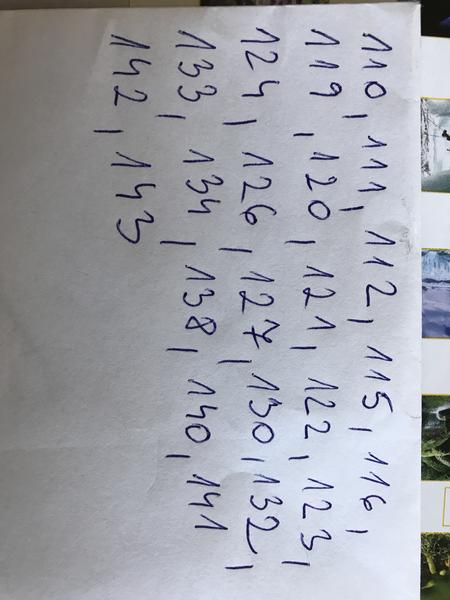 110, 111, 112, 115, 116,
119, 120, 121, 122, 123,
124, 126, 127, 130, 132,
133, 134, 138, 140, 141
142, 143